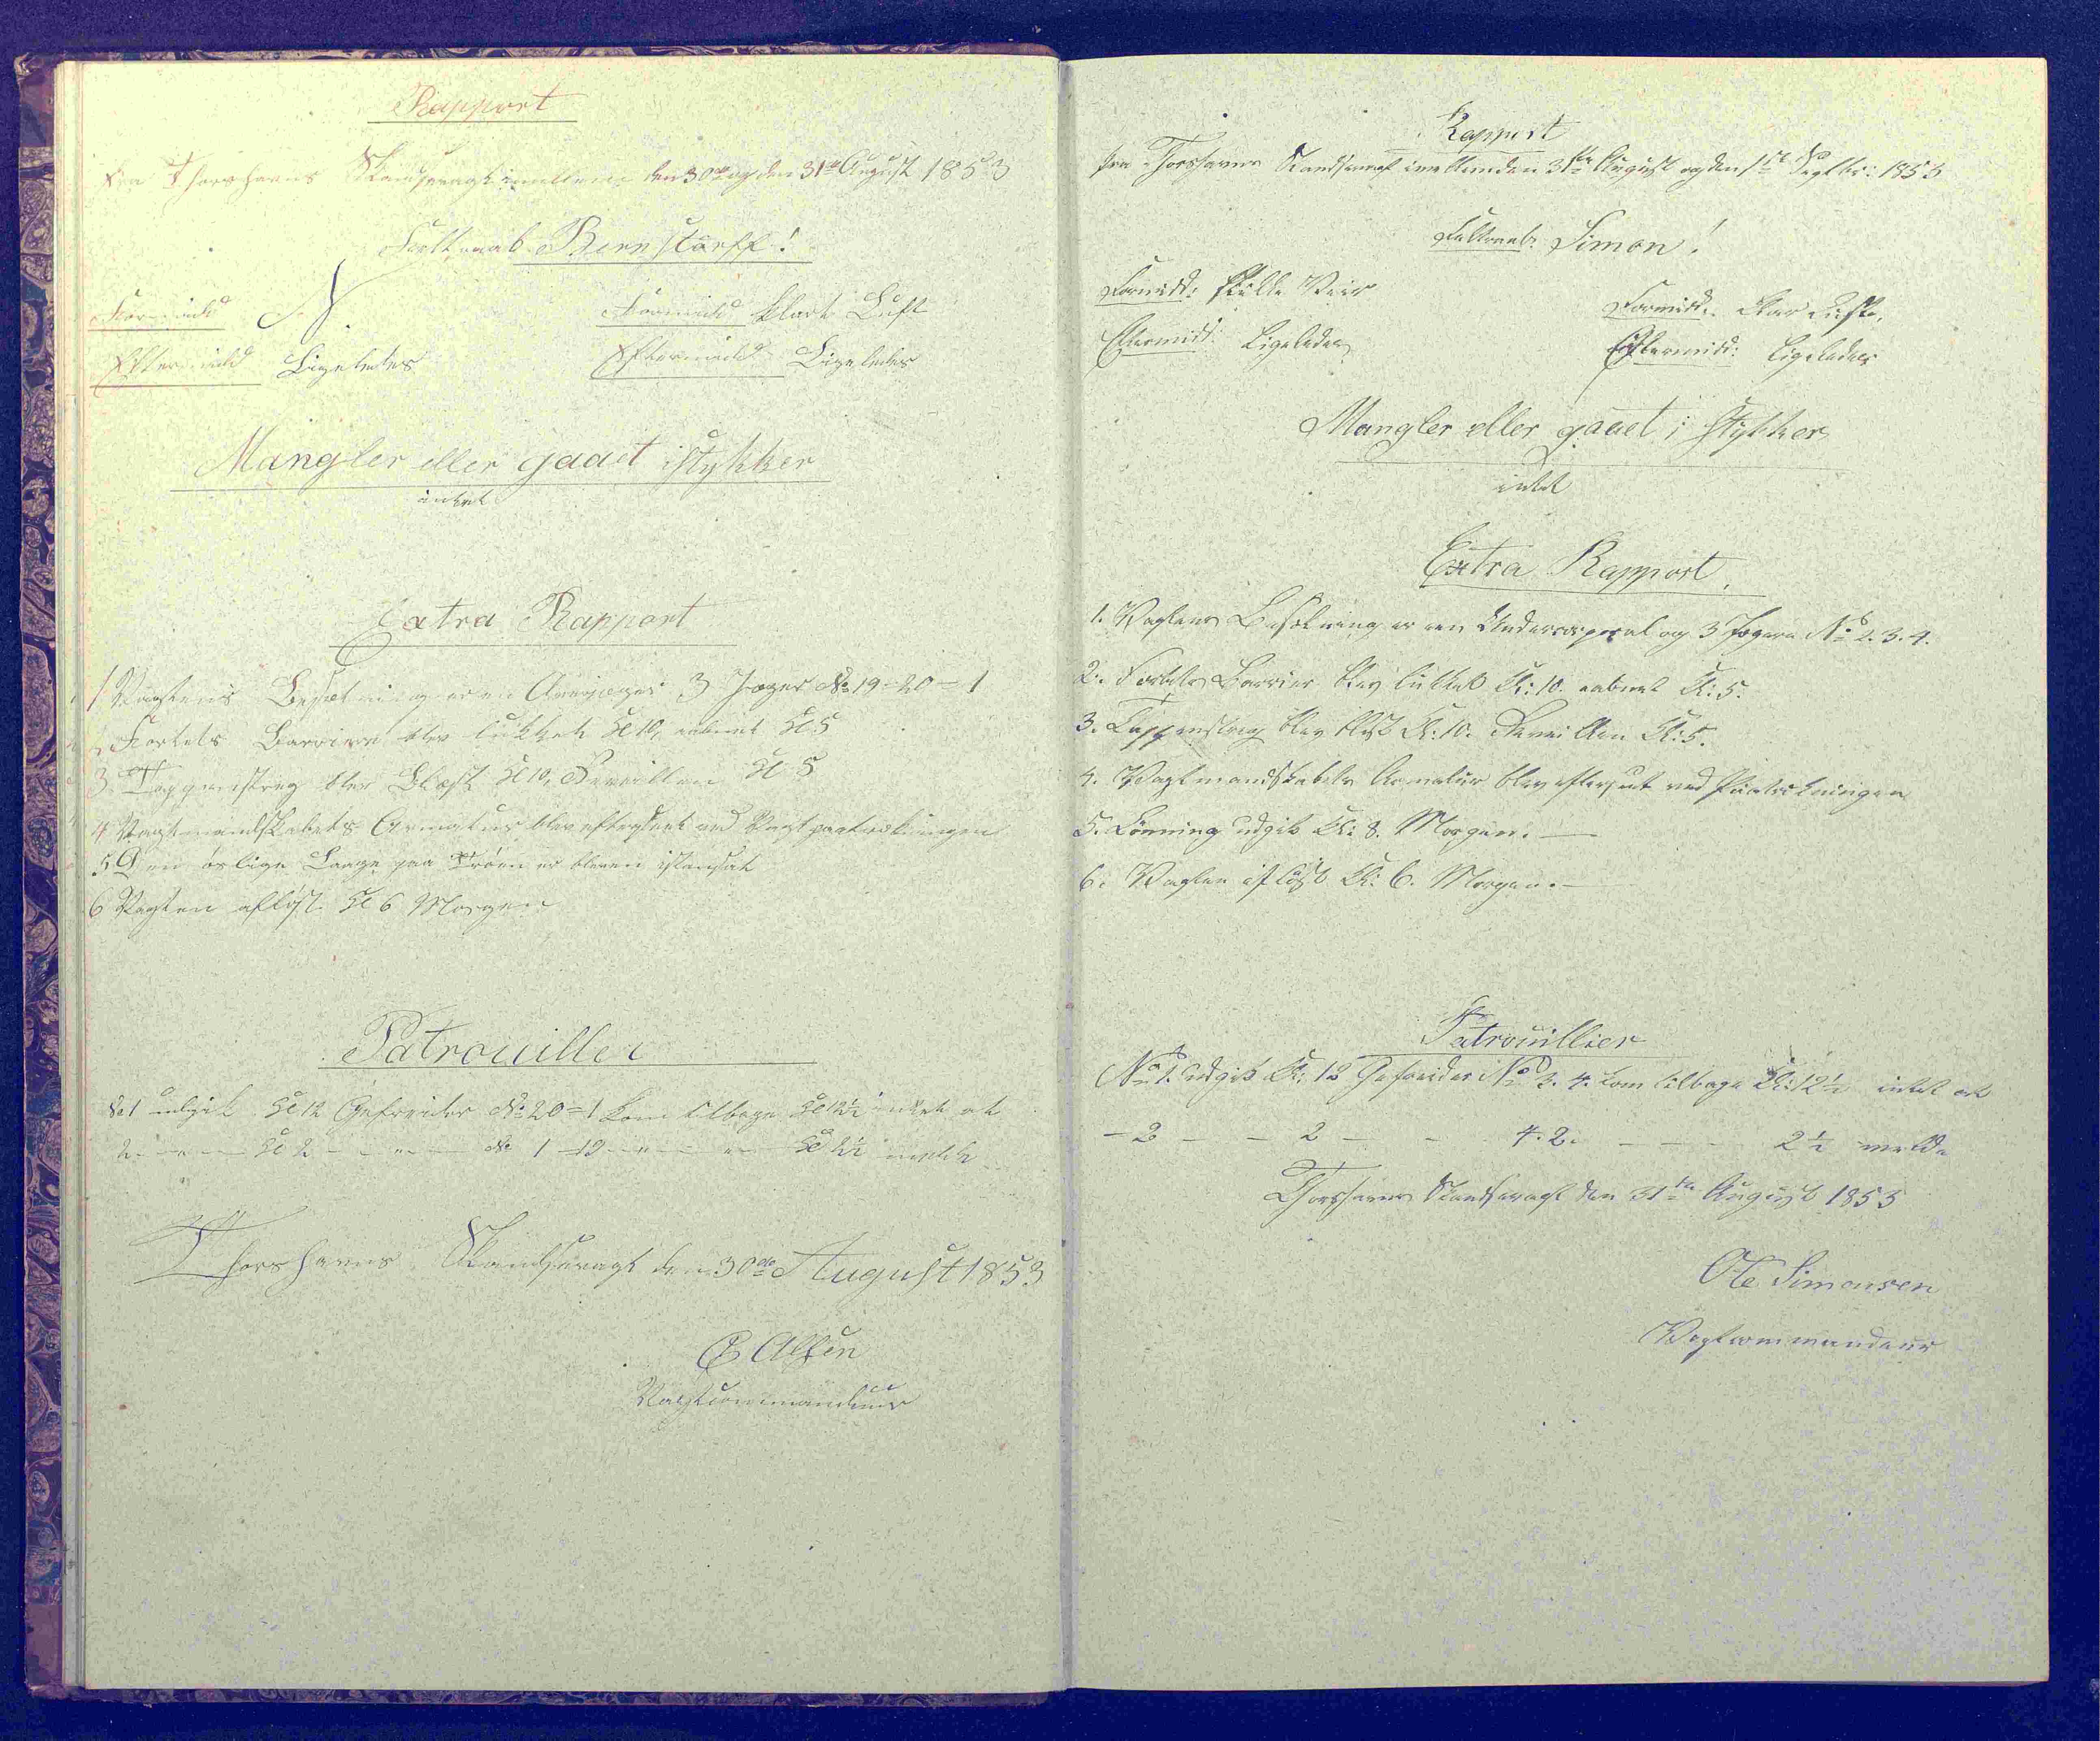 Rapport
fra Thorshavns Skandsevagt imellem den 30te og den 31te August 1853
Feltraab Bernstorff!
Formidd N.
Formidd klart Luft
Eftermidd Ligeledes
Eftermidd Ligeledes
Mangler eller gaaet istykker
intet
Extra Rapport
1 Vagtens Besætning er en 3 Jæger No 19 = 20 = 1
2 Fortets Barriere blev lukket Kl 10, aabnet Kl 5
3 Tappenstreg blev Blæst Kl 10, Reveillen Kl 5
4 Vagtmandskabets Armatur blev efterseet ved Vagtpaatrækningen
5 Den øslige Laage paa er bleven istandsat
6 Vagten afløst Kl 6 Morgen
Patrouiller
No 1 udgik Kl 12 Gefreider No 20 = 1 kom tilbage Kl 12½ intet at
2 - - - Kl 2 - - - - No 1 - 19 - - - - Kl 2½ melde
Thorshavns Skandsevagt den 30te August 1853
Vagtcommandeur
Rapport
fra Thorshavns Skandsevagt imellem den 31te August og den 1ste Septbr: 1853
Feltraab: Simon!
Formidd: stille Veir
Formidd: klar Luft.
Eftermidd: Ligeledes
Eftermidd: Ligeledes
Mangler eller gaaet i stykker
intet
Extra Rapport.
1. Vagtens Besætning er en Undercorporal og 3 Jægere No 2. 3. 4.
2. Fortets Barrier blev lukket Kl: 10. aabnet Kl: 5.
3. Tappenstreg blev blæst Kl: 10. Reveillen Kl: 5.
4. Vagtmandskabets Armatur blev efterseet ved Paatrækningen
5. Lønning udgik Kl: 8. Morgen. —
6. Vagten afløst Kl: 6. Morgen. —
Patrouillier
No 1. udgik Kl: 12 Gefreider No 3. 4. kom tilbage Kl: 12½ intet at
- 2 - - 2 - - 4. 2. - - - 2½ melde
Thorshavns Skandsevagt den 31te August 1853
Ole Simonsen
Vagtcommandeur